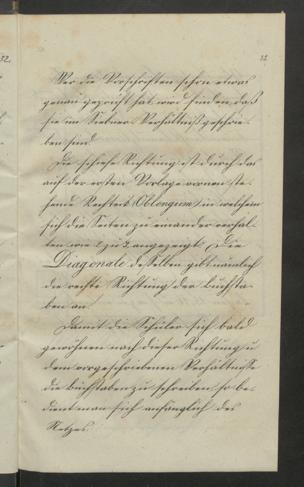 32.
32
Wer die Vorschriften schon etwas
genau gezeichnet hat wird finden daß
sie im Siebner Verhältniß geschrie-
ben sind.
Die schiefe Richtung ist durch das
auf der ersten Vorlage vornen ste-
hende Rechteck (Oblongum) in welchem
sich die Seiten zu einander verhal-
ten wie 1 zu 2 angezeigt. Die
Diagonale desselben gibt nämlich
die rechte Richtung der Buchsta-
ben an.
Damit die Schüler sich bald
gewöhnen nach dieser Richtung u
dem vorgeschriebenen Verhältnisse
die Buchstaben zu schreiben so be-
dient man sich anfänglich des
Netzes.